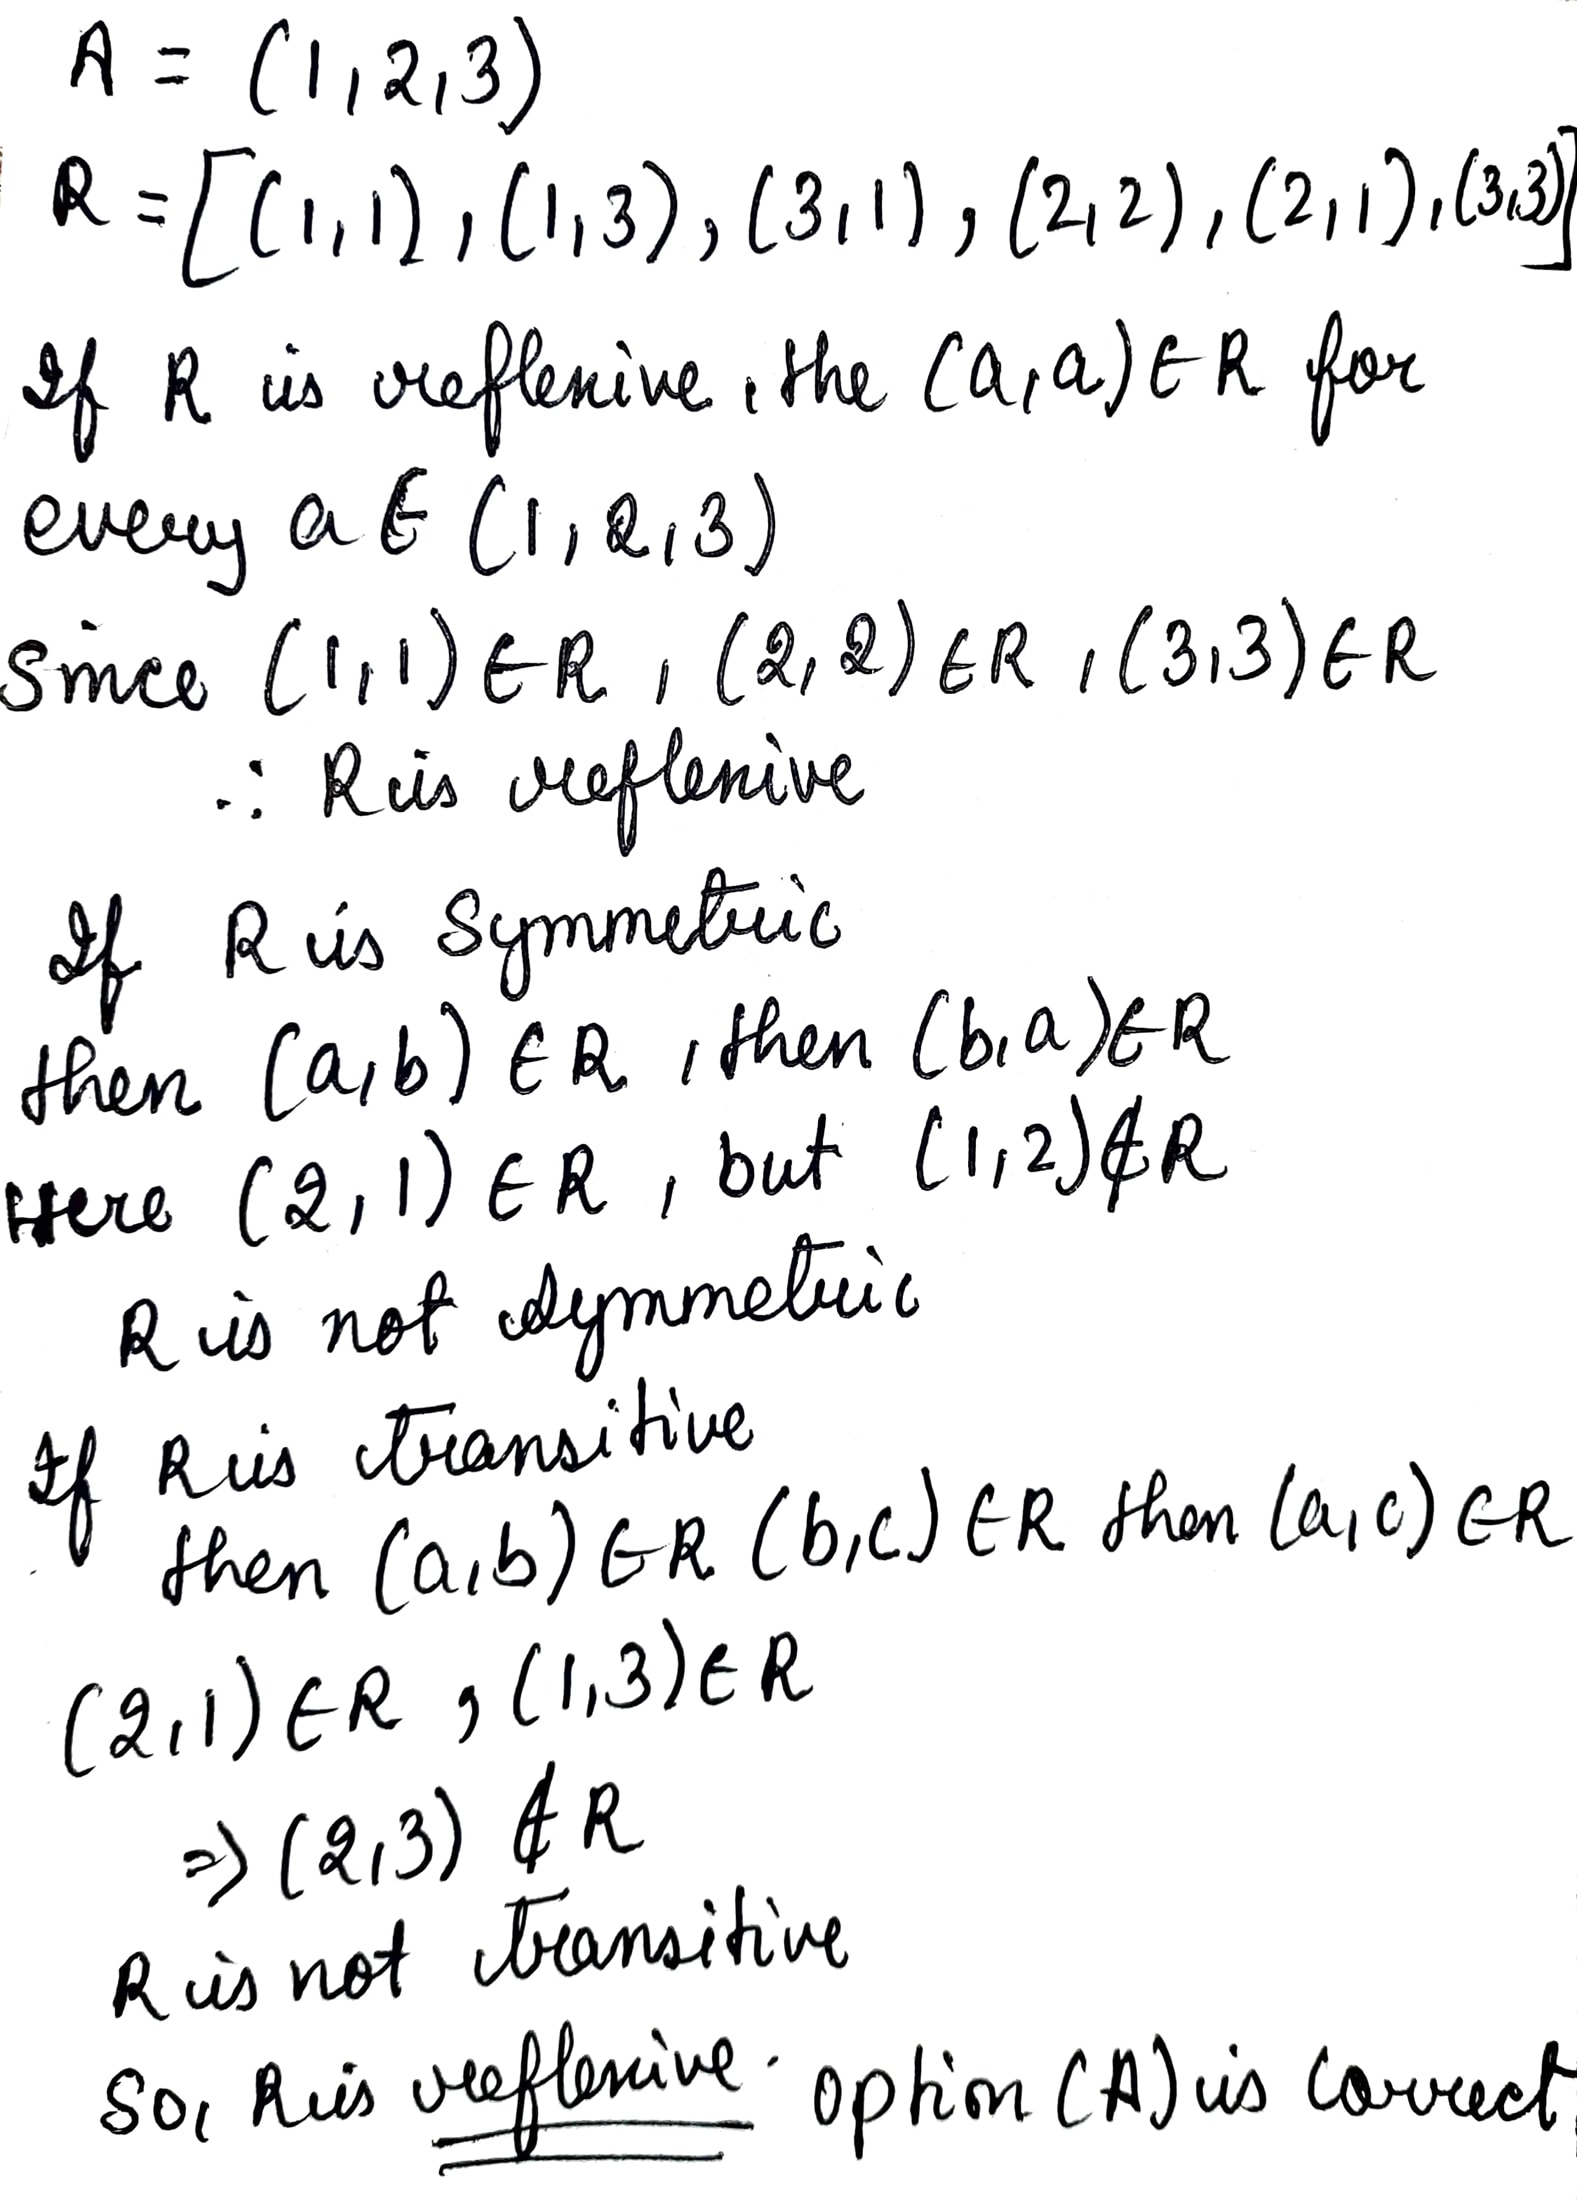 A = (1,2,3)
R = [(1,1), (1,3), (3,1), (2,2), (2,1), (3,3)]
If R is reflexive, the (a,a) ∈ R for
every a ∈ (1,2,3)
Since (1,1) ∈ R, (2,2) ∈ R, (3,3) ∈ R
∴ R is reflexive
If R is Symmetric
then (a,b) ∈ R, then (b,a) ∈ R
Here (2,1) ∈ R, but (1,2) ∉ R
R is not symmetric
If R is transitive
then (a,b) ∈ R (b,c) ∈ R then (a,c) ∈ R
(2,1) ∈ R, (1,3) ∈ R
⇒ (2,3) ∉ R
R is not transitive
So, R is reflexive. option (A) is correct.